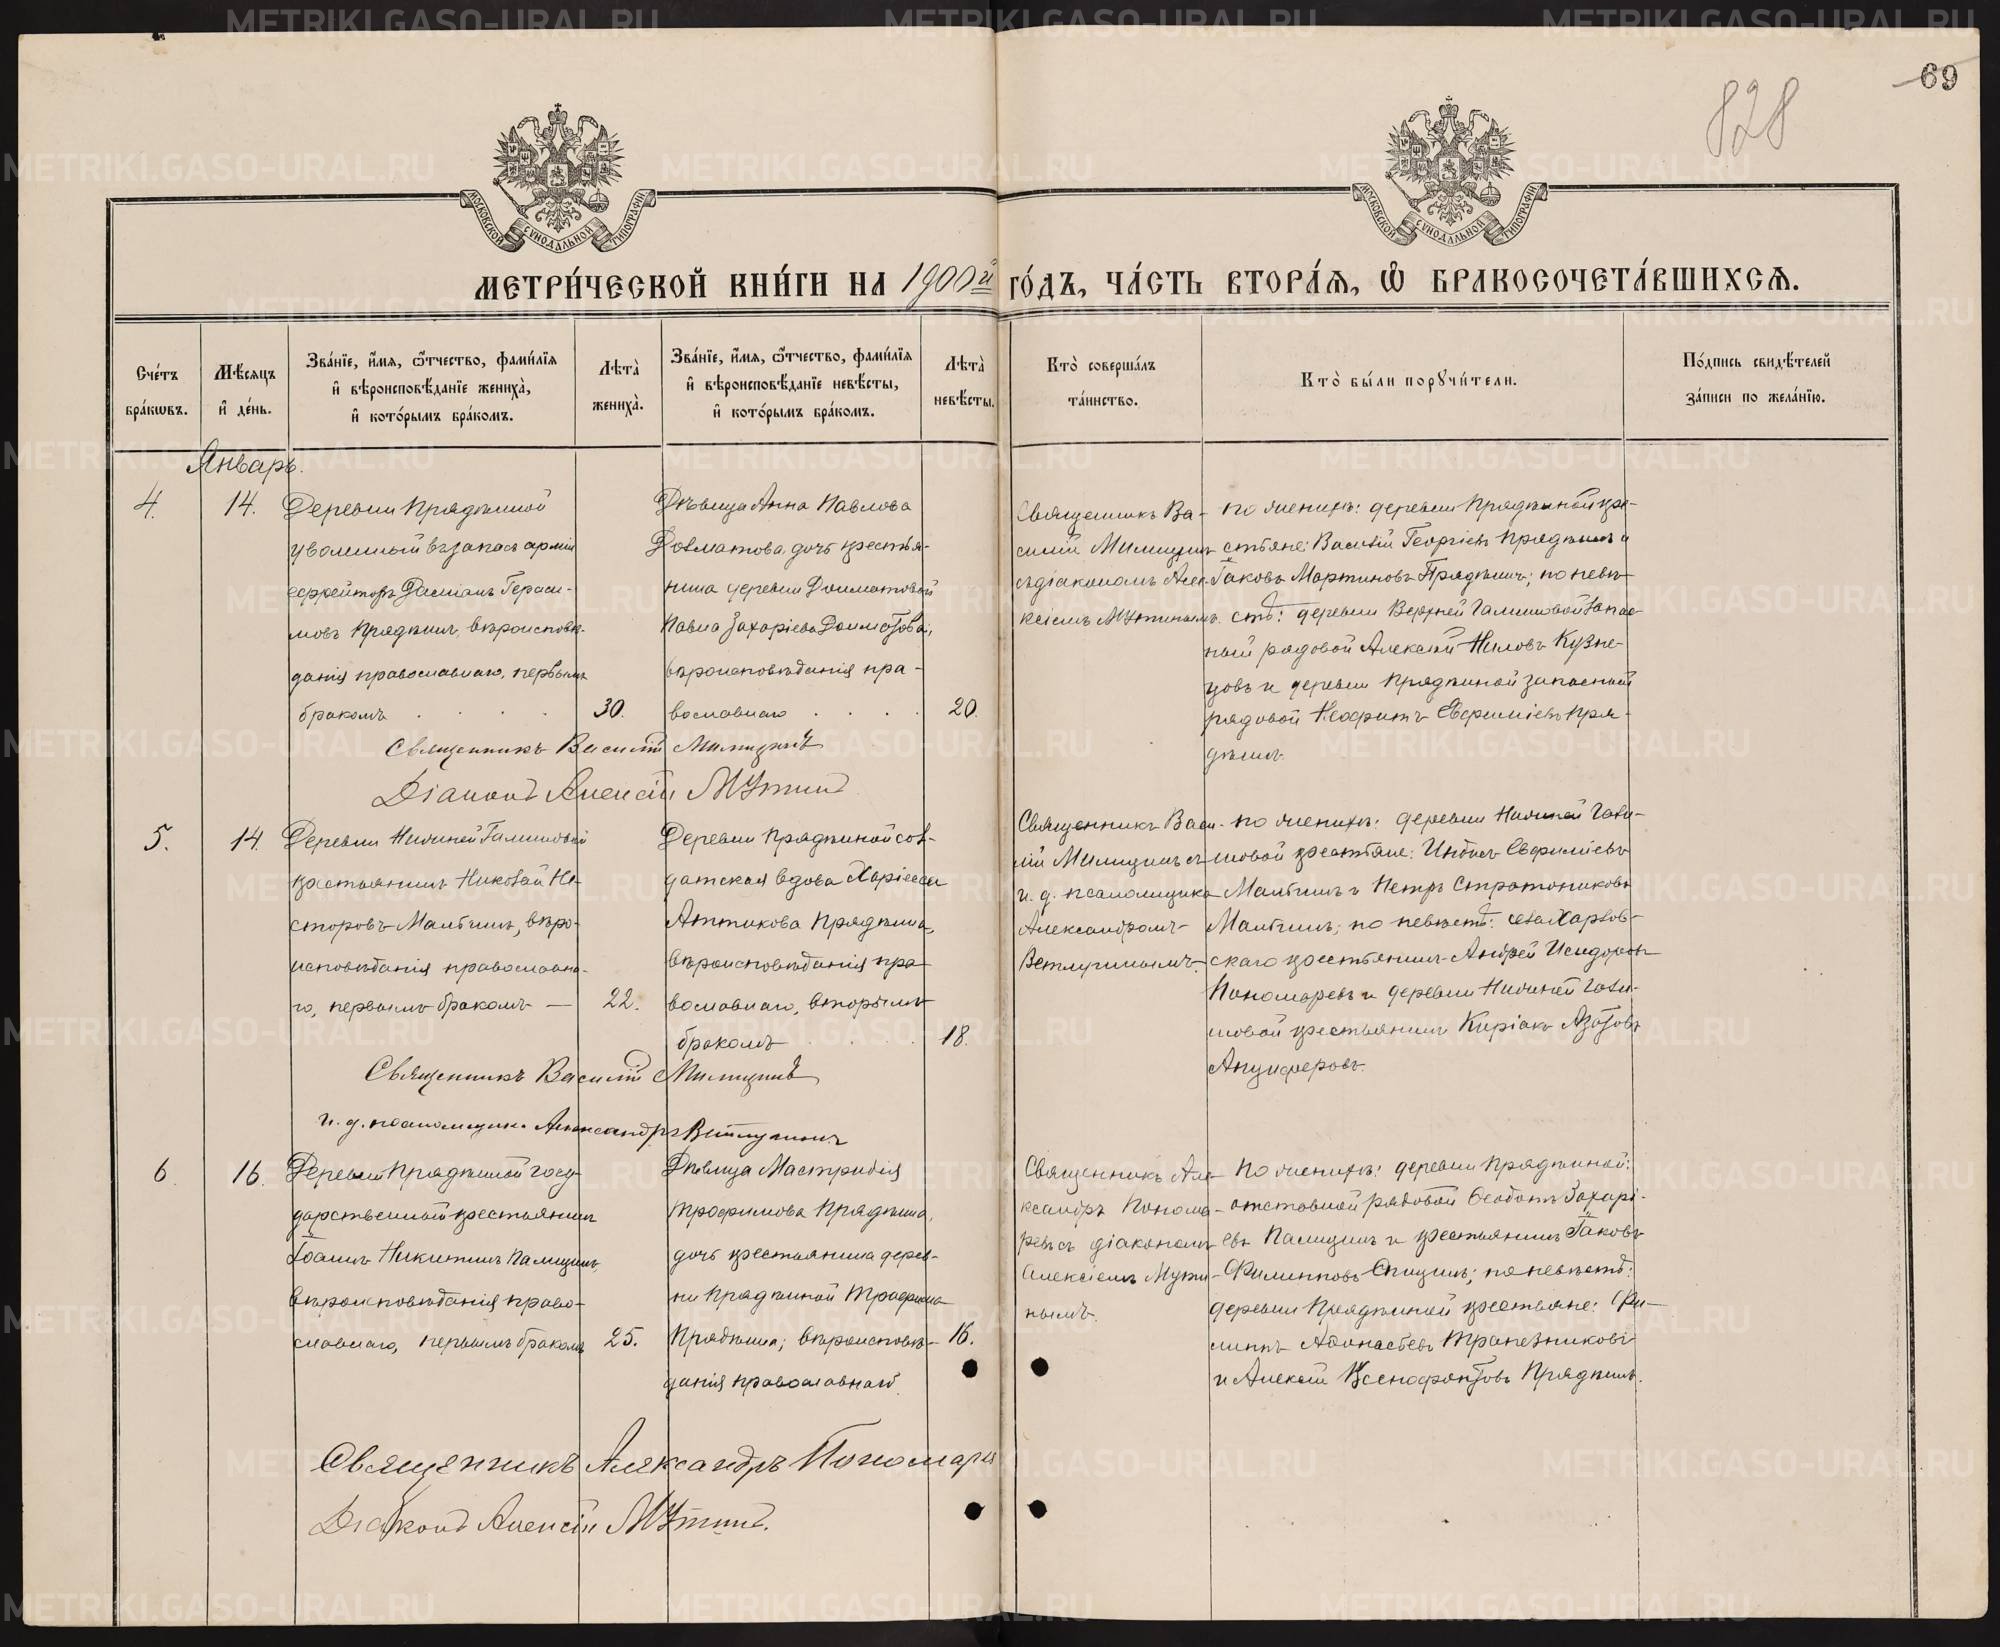 69
828
МОСКОВСКОЙ СѴНОДАЛЬНОЙ ТИПОГРАФІИ
МОСКОВСКОЙ СѴНОДАЛЬНОЙ ТИПОГРАФІИ
МЕТРИ́ЧЕСКОЙ КНИ́ГИ НА 1900й ГО́ДЪ, ЧА́СТЬ ВТОРА́Я, Ѽ БРАКОСОЧЕТА́ВШИХСЯ.
Сче́тъ бра́кѡвъ.
Мѣ́сяцъ и҆ де́нь.
Зва́нїе, и҆́мя, ѻ҆́тчество, фами́лїя и҆ вѣроисповѣ́данїе жениха̀, и҆ кото́рымъ бра́комъ.
Лѣта̀ жениха̀.
Зва́нїе, и҆́мя, ѻ҆́тчество, фами́лїя и҆ вѣроисповѣ́данїе невѣ́сты, и҆ кото́рымъ бра́комъ.
Лѣта̀ невѣ́сты.
Кто̀ соверша́лъ та́инство.
Кто̀ бы́ли порꙋчи́тели.
По́дпись свидѣ́телей за́писи по жела́нїю.
Январь.
4.
14.
Деревни Прядѣиной
уволенный въ запасъ арміи
ефрейторъ Даміанъ Гераси-
мовъ Прядѣинъ, вѣроисповѣ-
данія православнаго, первымъ
бракомъ
30.
Дѣвица Анна Павлова
Долматова, дочь крестья-
нина деревни Долматовой
Павла Захаріева Долматова,
вѣроисповѣданія пра-
вославнаго
20.
Священникъ Ва-
силій Милицынъ
съ діакономъ Але-
ксіемъ Мутинымъ.
по женихѣ: деревни Прядѣиной кре-
стьяне: Василій Георгіевъ Прядѣинъ и
Іаковъ Мартиновъ Прядѣинъ; по невѣ-
стѣ: деревни Верхней Галишовой запас-
ный рядовой Алексій Ниловъ Кузне-
цовъ и деревни Прядѣиной запасный
рядовой Неофитъ Евфиміевъ Пря-
дѣинъ.
Священникъ Василій Милицынъ
Діаконъ Алексій Мутинъ
5.
14.
Деревни Нижней Галишовой
крестьянинъ Николай Не-
сторовъ Мальгинъ, вѣро-
исповѣданія православна-
го, первымъ бракомъ —
22.
Деревни Прядѣиной сол-
датская вдова Харіесса
Аттикова Прядѣина,
вѣроисповѣданія пра-
вославнаго, вторымъ
бракомъ
18.
Священникъ Васи-
лій Милицынъ съ
и. д. псаломщика
Александромъ
Ветлугинымъ.
по женихѣ: деревни Нижней Гали-
шовой крестьяне: Евфиміевъ
Мальгинъ и Петръ Стратониковъ
Мальгинъ; по невѣстѣ: села Харлов-
скаго крестьянинъ Андрей Исидоровъ
Пономаревъ и деревни Нижней Гали-
шовой крестьянинъ Киріакъ
Анциферовъ.
Священникъ Василій Милицынъ
и. д. псаломщика Александръ Ветлугинъ
6.
16.
Деревни Прядѣиной госу-
дарственный крестьянинъ
Іоаннъ Никитинъ Палицынъ,
вѣроисповѣданія право-
славнаго, первымъ бракомъ
25.
Дѣвица Мастридія
Трофимова Прядѣина,
дочь крестьянина дерев-
ни Прядѣиной Трофима
Прядѣина, вѣроисповѣ-
данія православнаго.
16.
Священникъ Але-
ксандръ Понома-
ревъ съ діакономъ
Алексіемъ Мути-
нымъ.
По женихѣ: деревни Прядѣиной:
отставной рядовой Ѳеодотъ Захарі-
евъ Палицынъ и крестьянинъ Іаковъ
Филипповъ Спицинъ; по невѣстѣ:
деревни Прядѣиной крестьяне: Фи-
липпъ Аѳанасьевъ Трапезниковъ
и Алексій Ксенофонтовъ Прядѣинъ.
Священникъ Александръ Пономарев
Діаконъ Алексій Мутинъ.
METRIKI.GASO-URAL.RU